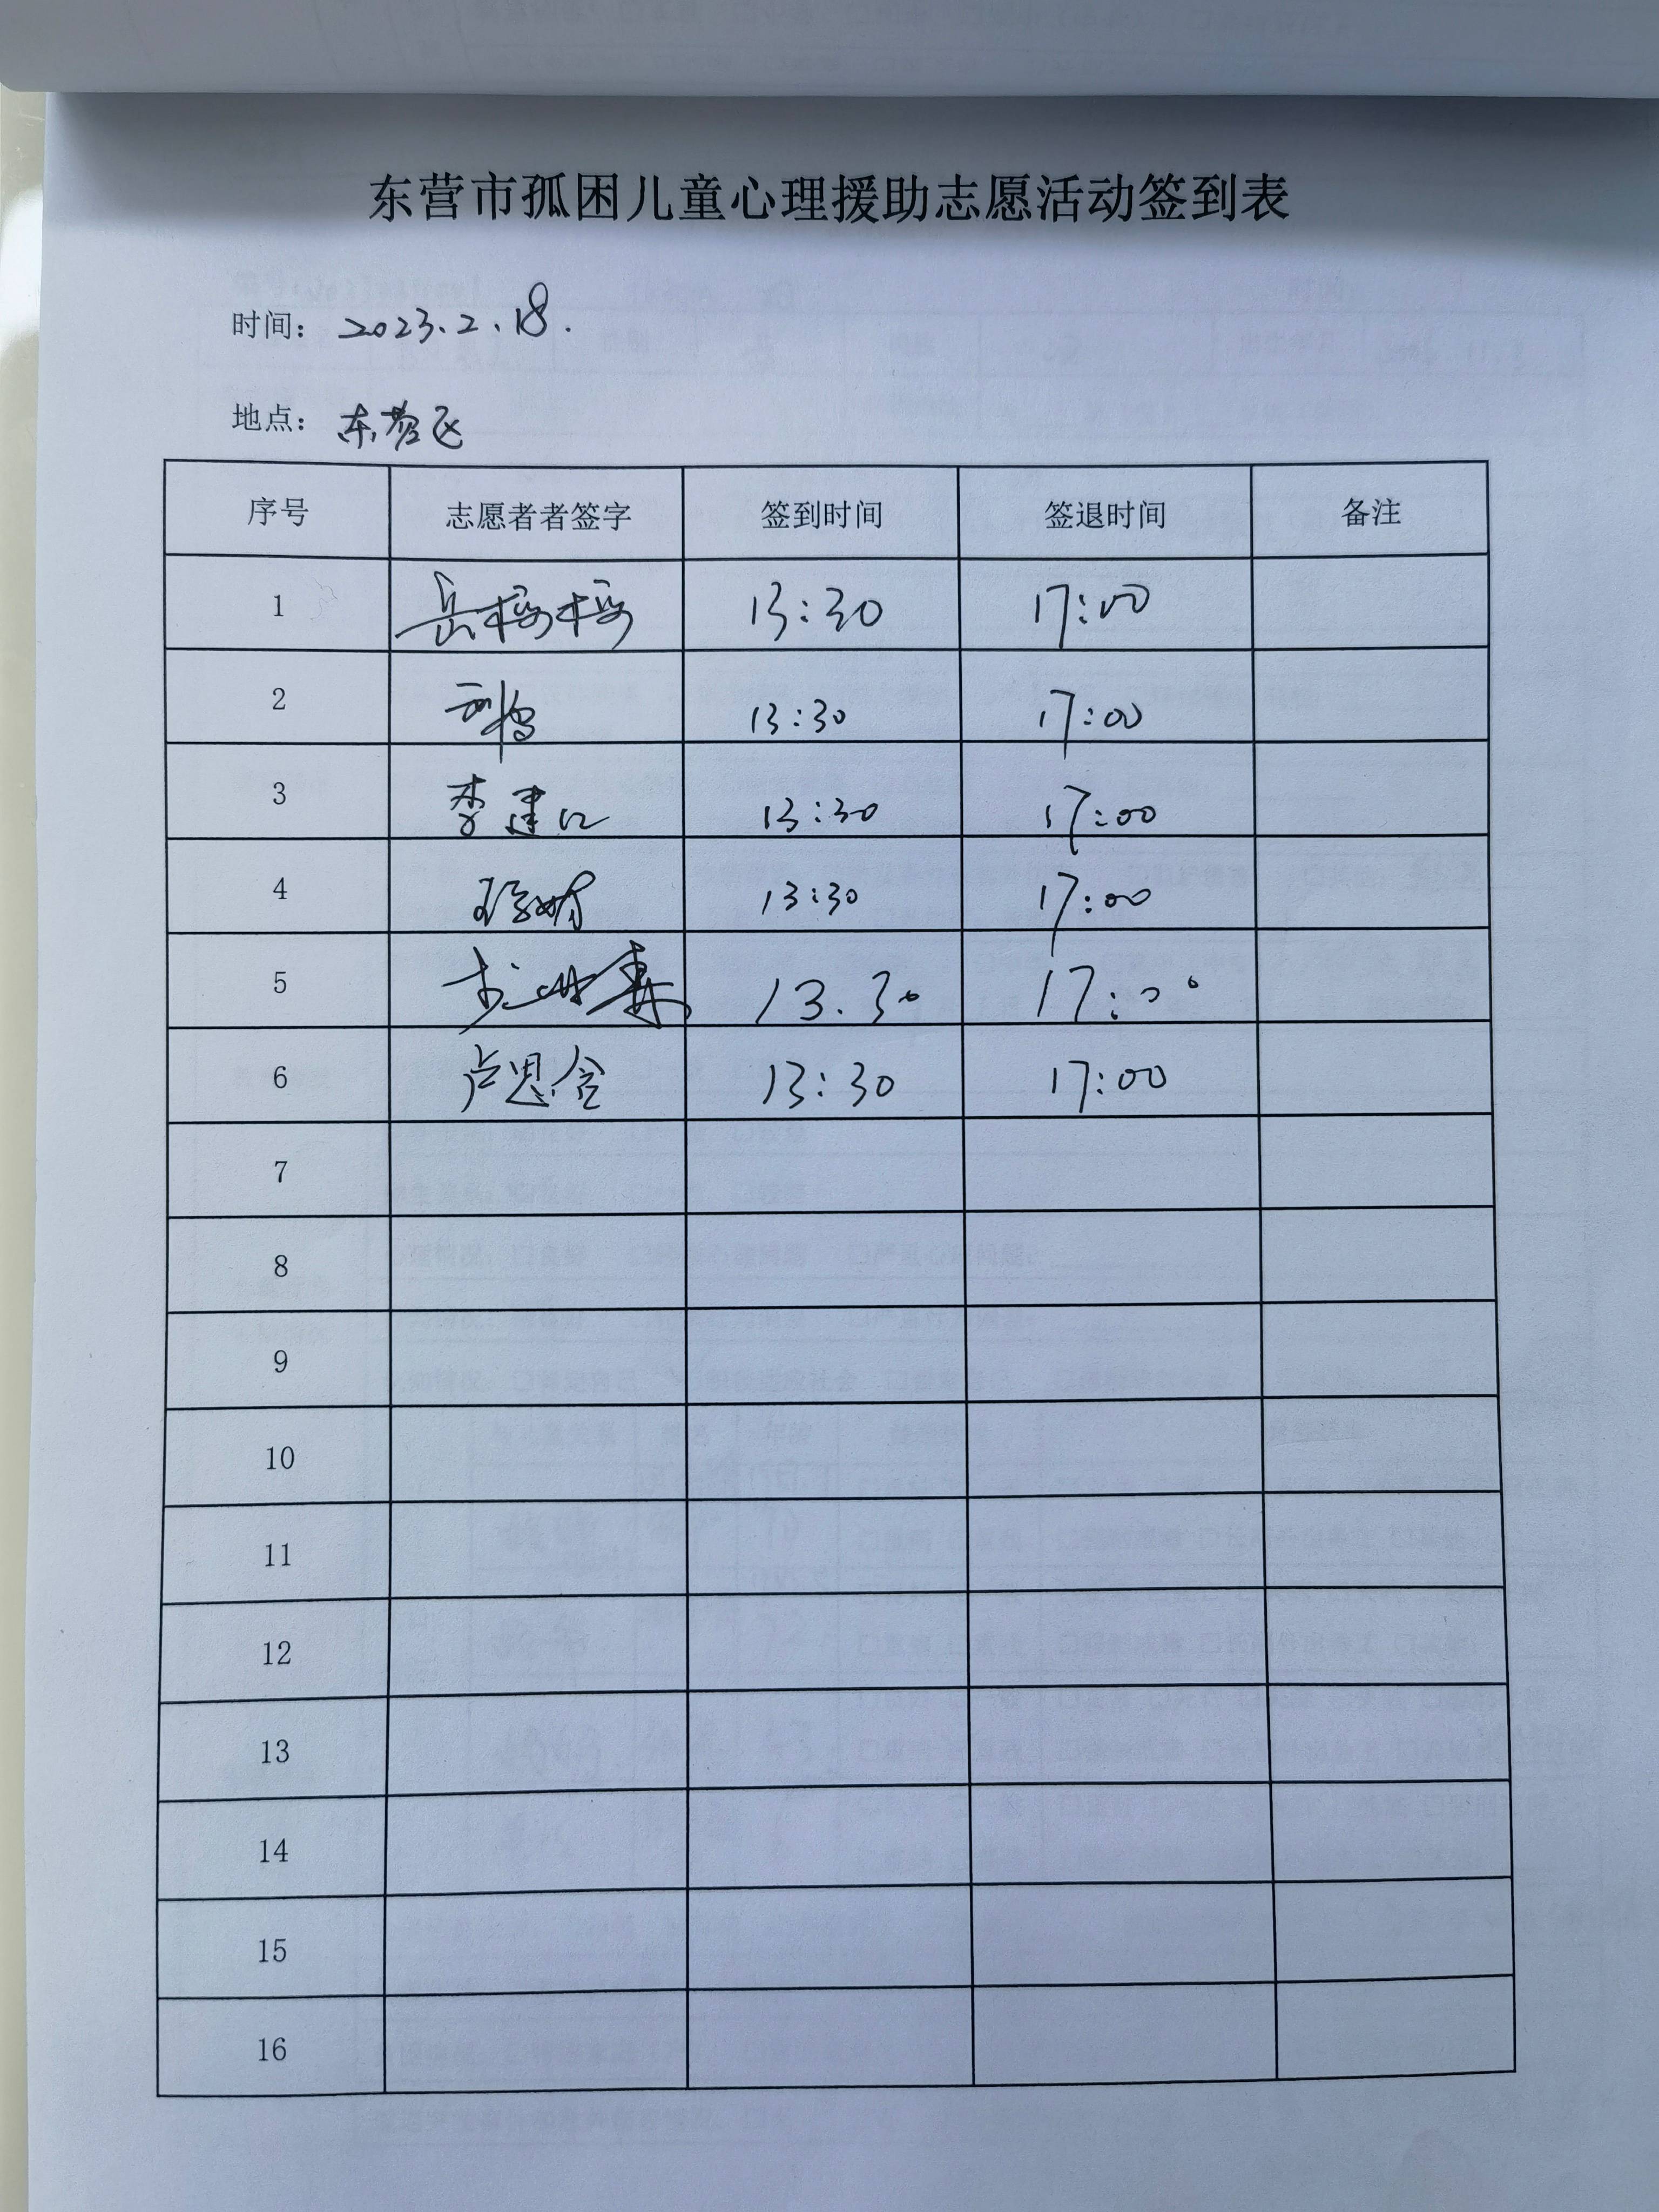 东营市孤困儿童心理援助志愿活动签到表
时间： 2023.2.18.
地点： 东营区
序号 志愿者者签字 签到时间 签退时间 备注
1 岳樱樱 13:30 17:00
2 13:30 17:00
3 李建江 13:30 17:00
4 13:30 17:00
5 13.30 17:00
6 卢思含 13:30 17:00
7
8
9
10
11
12
13
14
15
16